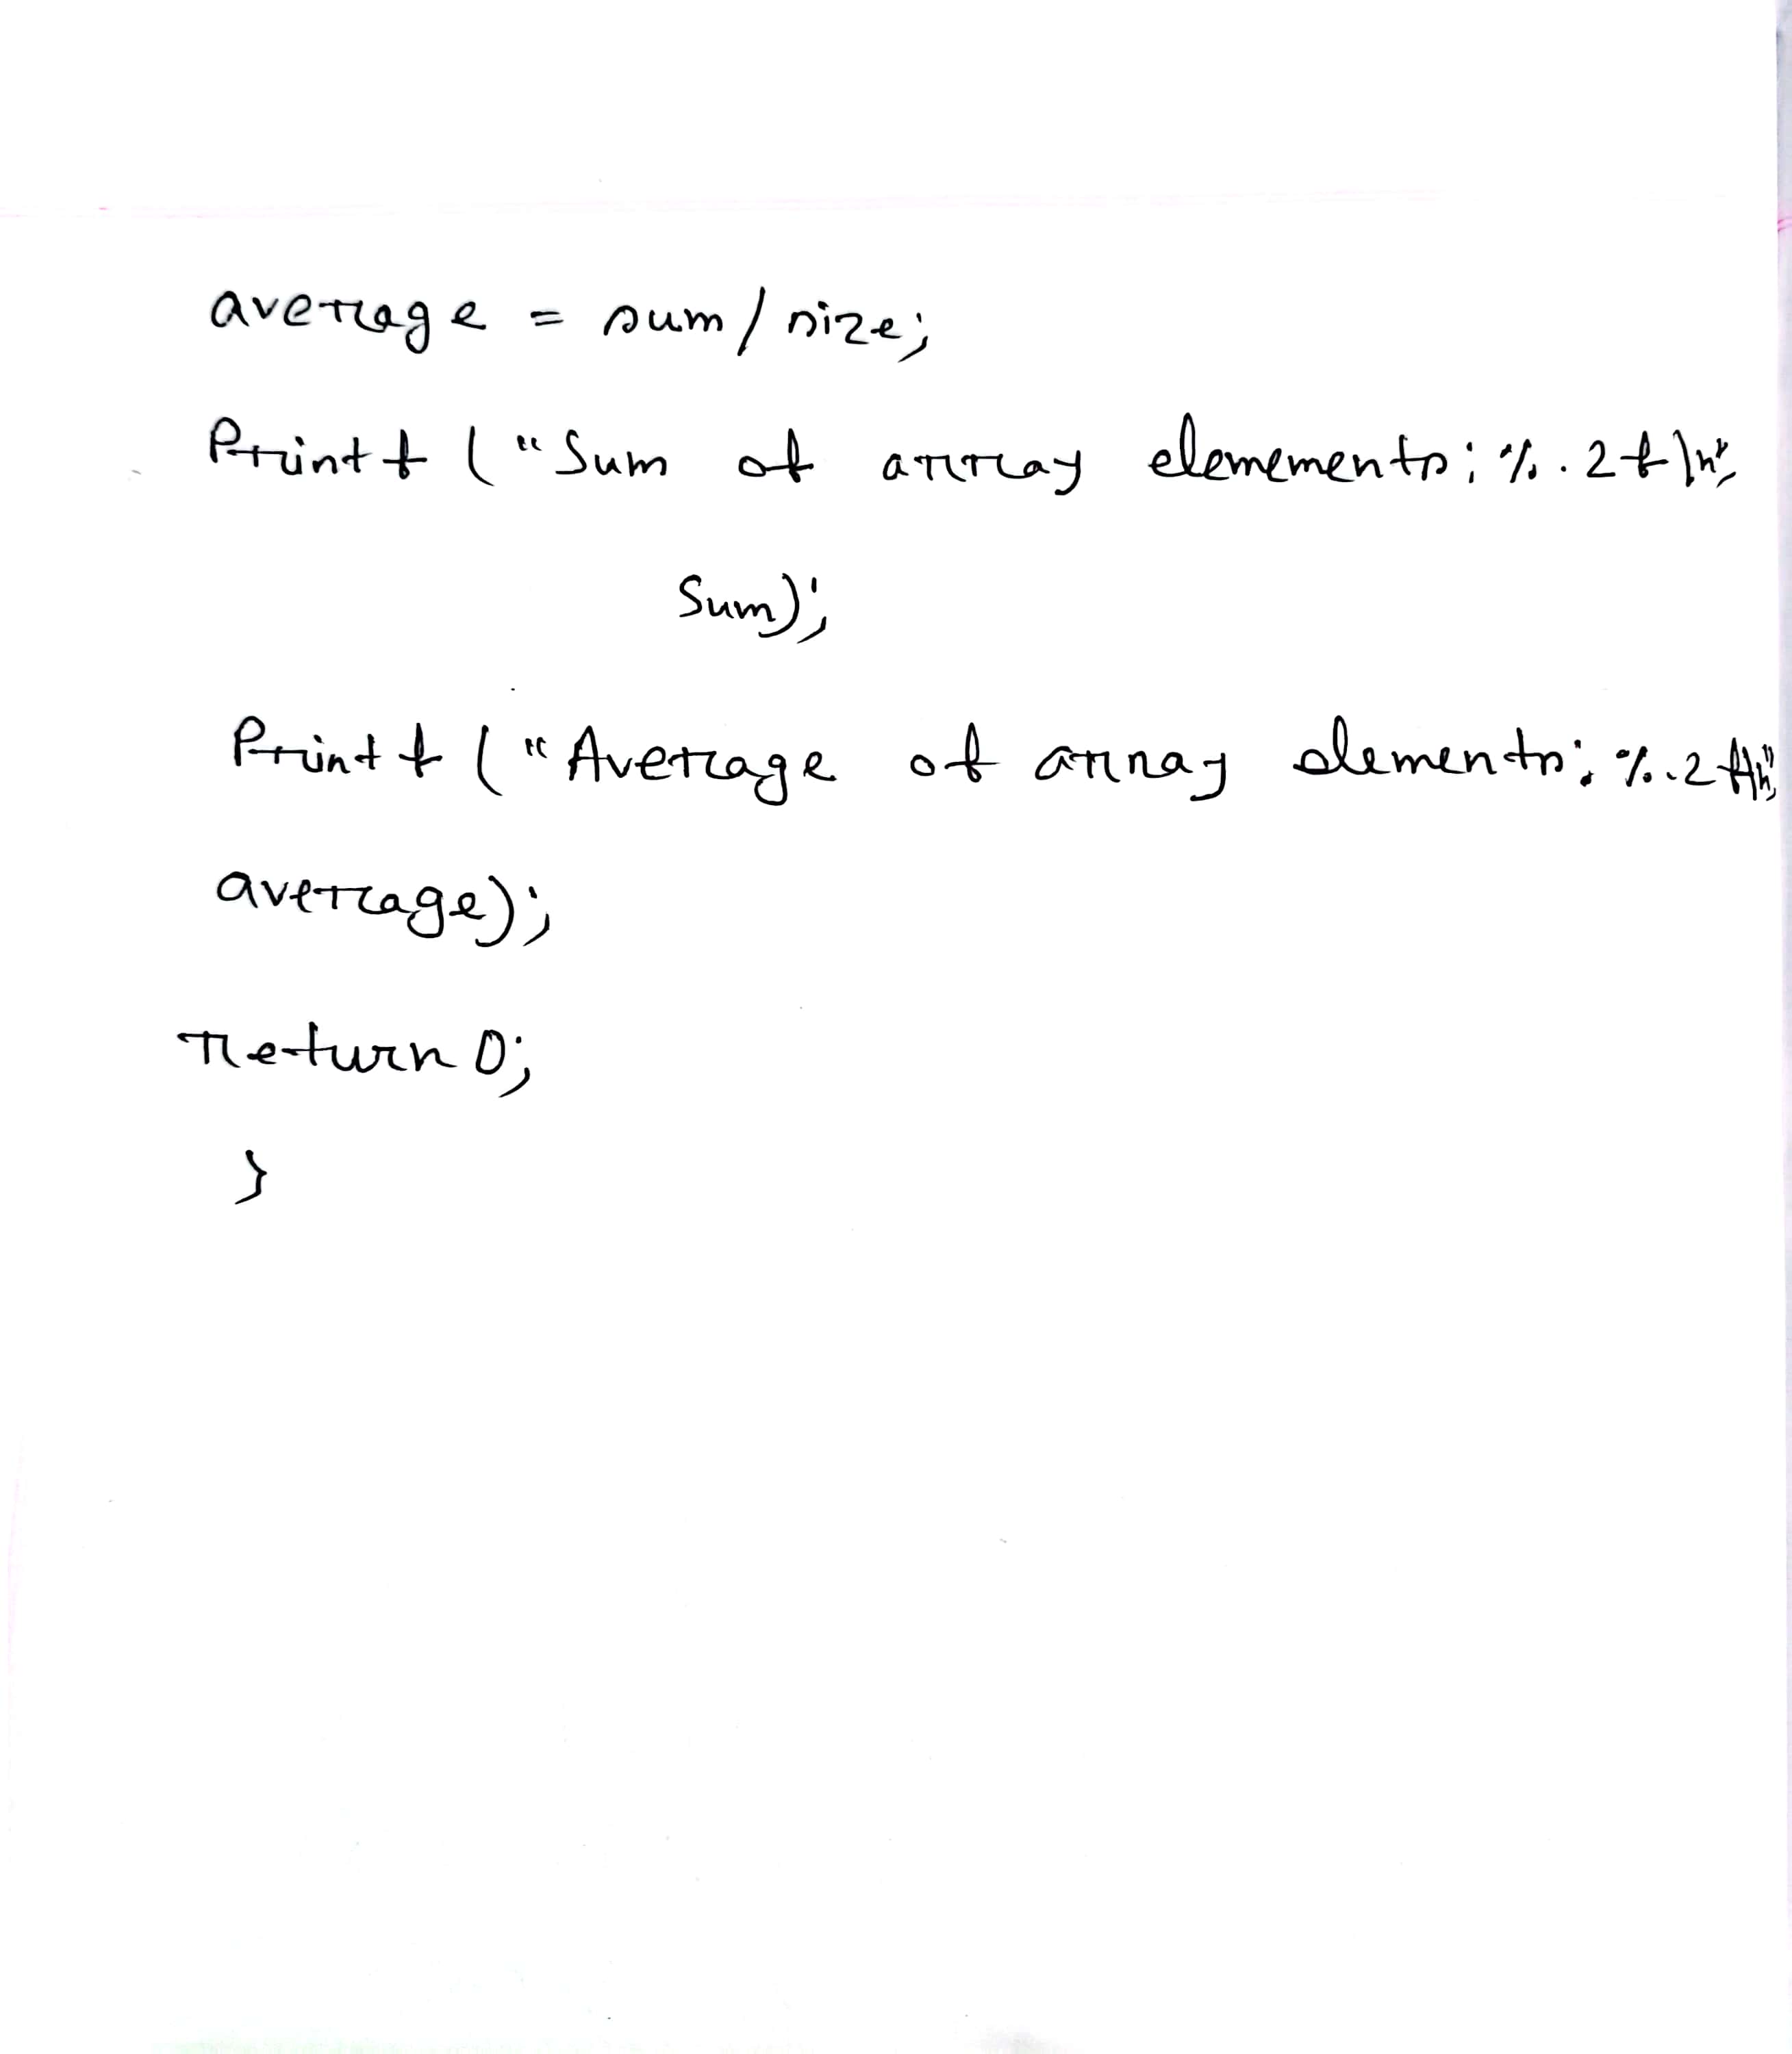 average = sum/size;
Printf ("Sum of array elemements: %.2f\n",
Sum);
Printf ("Average of array elements: %.2f\n",
average);
return 0;
}